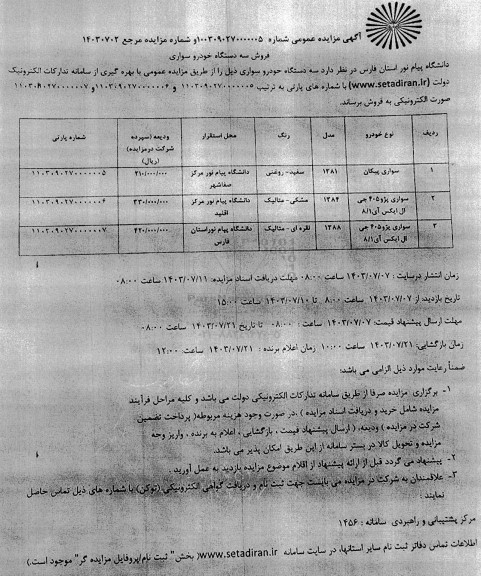 آگهی مزایده عمومی شماره ۱۰۰۳۰۹۰۲۷۰۰۰۰۰۵ و شماره مزایده مرجع ۱۴۰۳۰۷۰۲
فروش سه دستگاه خودرو سواری
دانشگاه پیام نور استان فارس در نظر دارد سه دستگاه خودرو سواری ذیل را از طریق مزایده عمومی با بهره گیری از سامانه تدارکات الکترونیک
دولت (www.setadiran.ir) با شماره های پارتی به ترتیب ۱۱۰۳۰۹۰۲۷۰۰۰۰۰۰۵ و ۱۱۰۳۰۹۰۲۷۰۰۰۰۰۰۶ و ۱۱۰۳۰۹۰۲۷۰۰۰۰۰۰۷
صورت الکترونیکی به فروش برساند.
ردیف نوع خودرو مدل رنگ محل استقرار ودیعه (سپرده شرکت در مزایده) (ریال) شماره پارتی
۱ سواری پیکان ۱۳۸۱ سفید- روغنی دانشگاه پیام نور مرکز صفاشهر ۲۱۰/۰۰۰/۰۰۰ ۱۱۰۳۰۹۰۲۷۰۰۰۰۰۰۵
۲ سواری پژو ۴۰۵ جی ال ایکس آی ۸/۱ ۱۳۸۴ مشکی- متالیک دانشگاه پیام نور مرکز اقلید ۳۳۰/۰۰۰/۰۰۰ ۱۱۰۳۰۹۰۲۷۰۰۰۰۰۰۶
۳ سواری پژو ۴۰۵ جی ال ایکس آی ۸/۱ ۱۳۸۸ نقره ای- متالیک دانشگاه پیام نور استان فارس ۴۲۰/۰۰۰/۰۰۰ ۱۱۰۳۰۹۰۲۷۰۰۰۰۰۰۷
زمان انتشار در سایت : ۱۴۰۳/۰۷/۰۷ ساعت ۰۸:۰۰ مهلت دریافت اسناد مزایده: ۱۴۰۳/۰۷/۱۱ ساعت ۰۸:۰۰
تاریخ بازدید: از ۱۴۰۳/۰۷/۰۷ ساعت ۸:۰۰ تا ۱۴۰۳/۰۷/۱۰ ساعت ۱۵:۰۰
مهلت ارسال پیشنهاد قیمت: ۱۴۰۳/۰۷/۰۷ ساعت : ۰۸:۰۰ تا تاریخ ۱۴۰۳/۰۷/۲۱ ساعت ۰۸:۰۰
زمان بازگشایی: ۱۴۰۳/۰۷/۲۱ ساعت ۱۰:۰۰ زمان اعلام برنده : ۱۴۰۳/۰۷/۲۱ ساعت ۱۲:۰۰
ضمناً رعایت موارد ذیل الزامی می باشد:
۱- برگزاری مزایده صرفا از طریق سامانه تدارکات الکترونیکی دولت می باشد و کلیه مراحل فرآیند
مزایده شامل خرید و دریافت اسناد مزایده ) ،در صورت وجود هزینه مربوطه( پرداخت تضمین
شرکت در مزایده ) ودیعه، ( ارسال پیشنهاد قیمت ، بازگشایی ، اعلام به برنده ، واریز وجه
مزایده و تحویل کالا در بستر سامانه از این طریق امکان پذیر می باشد.
۲- پیشنهاد می گردد قبل از ارائه پیشنهاد از اقلام موضوع مزایده بازدید به عمل آورید .
۳- علاقمندان به شرکت در مزایده می بایست جهت ثبت نام و دریافت گواهی الکترونیکی (توکن) با شماره های ذیل تماس حاصل
نمایند :
مرکز پشتیبانی و راهبردی سامانه : ۱۴۵۶
اطلاعات تماس دفاتر ثبت نام سایر استانها، در سایت سامانه www.setadiran.ir( بخش " ثبت نام/پروفایل مزایده گر" موجود است.)